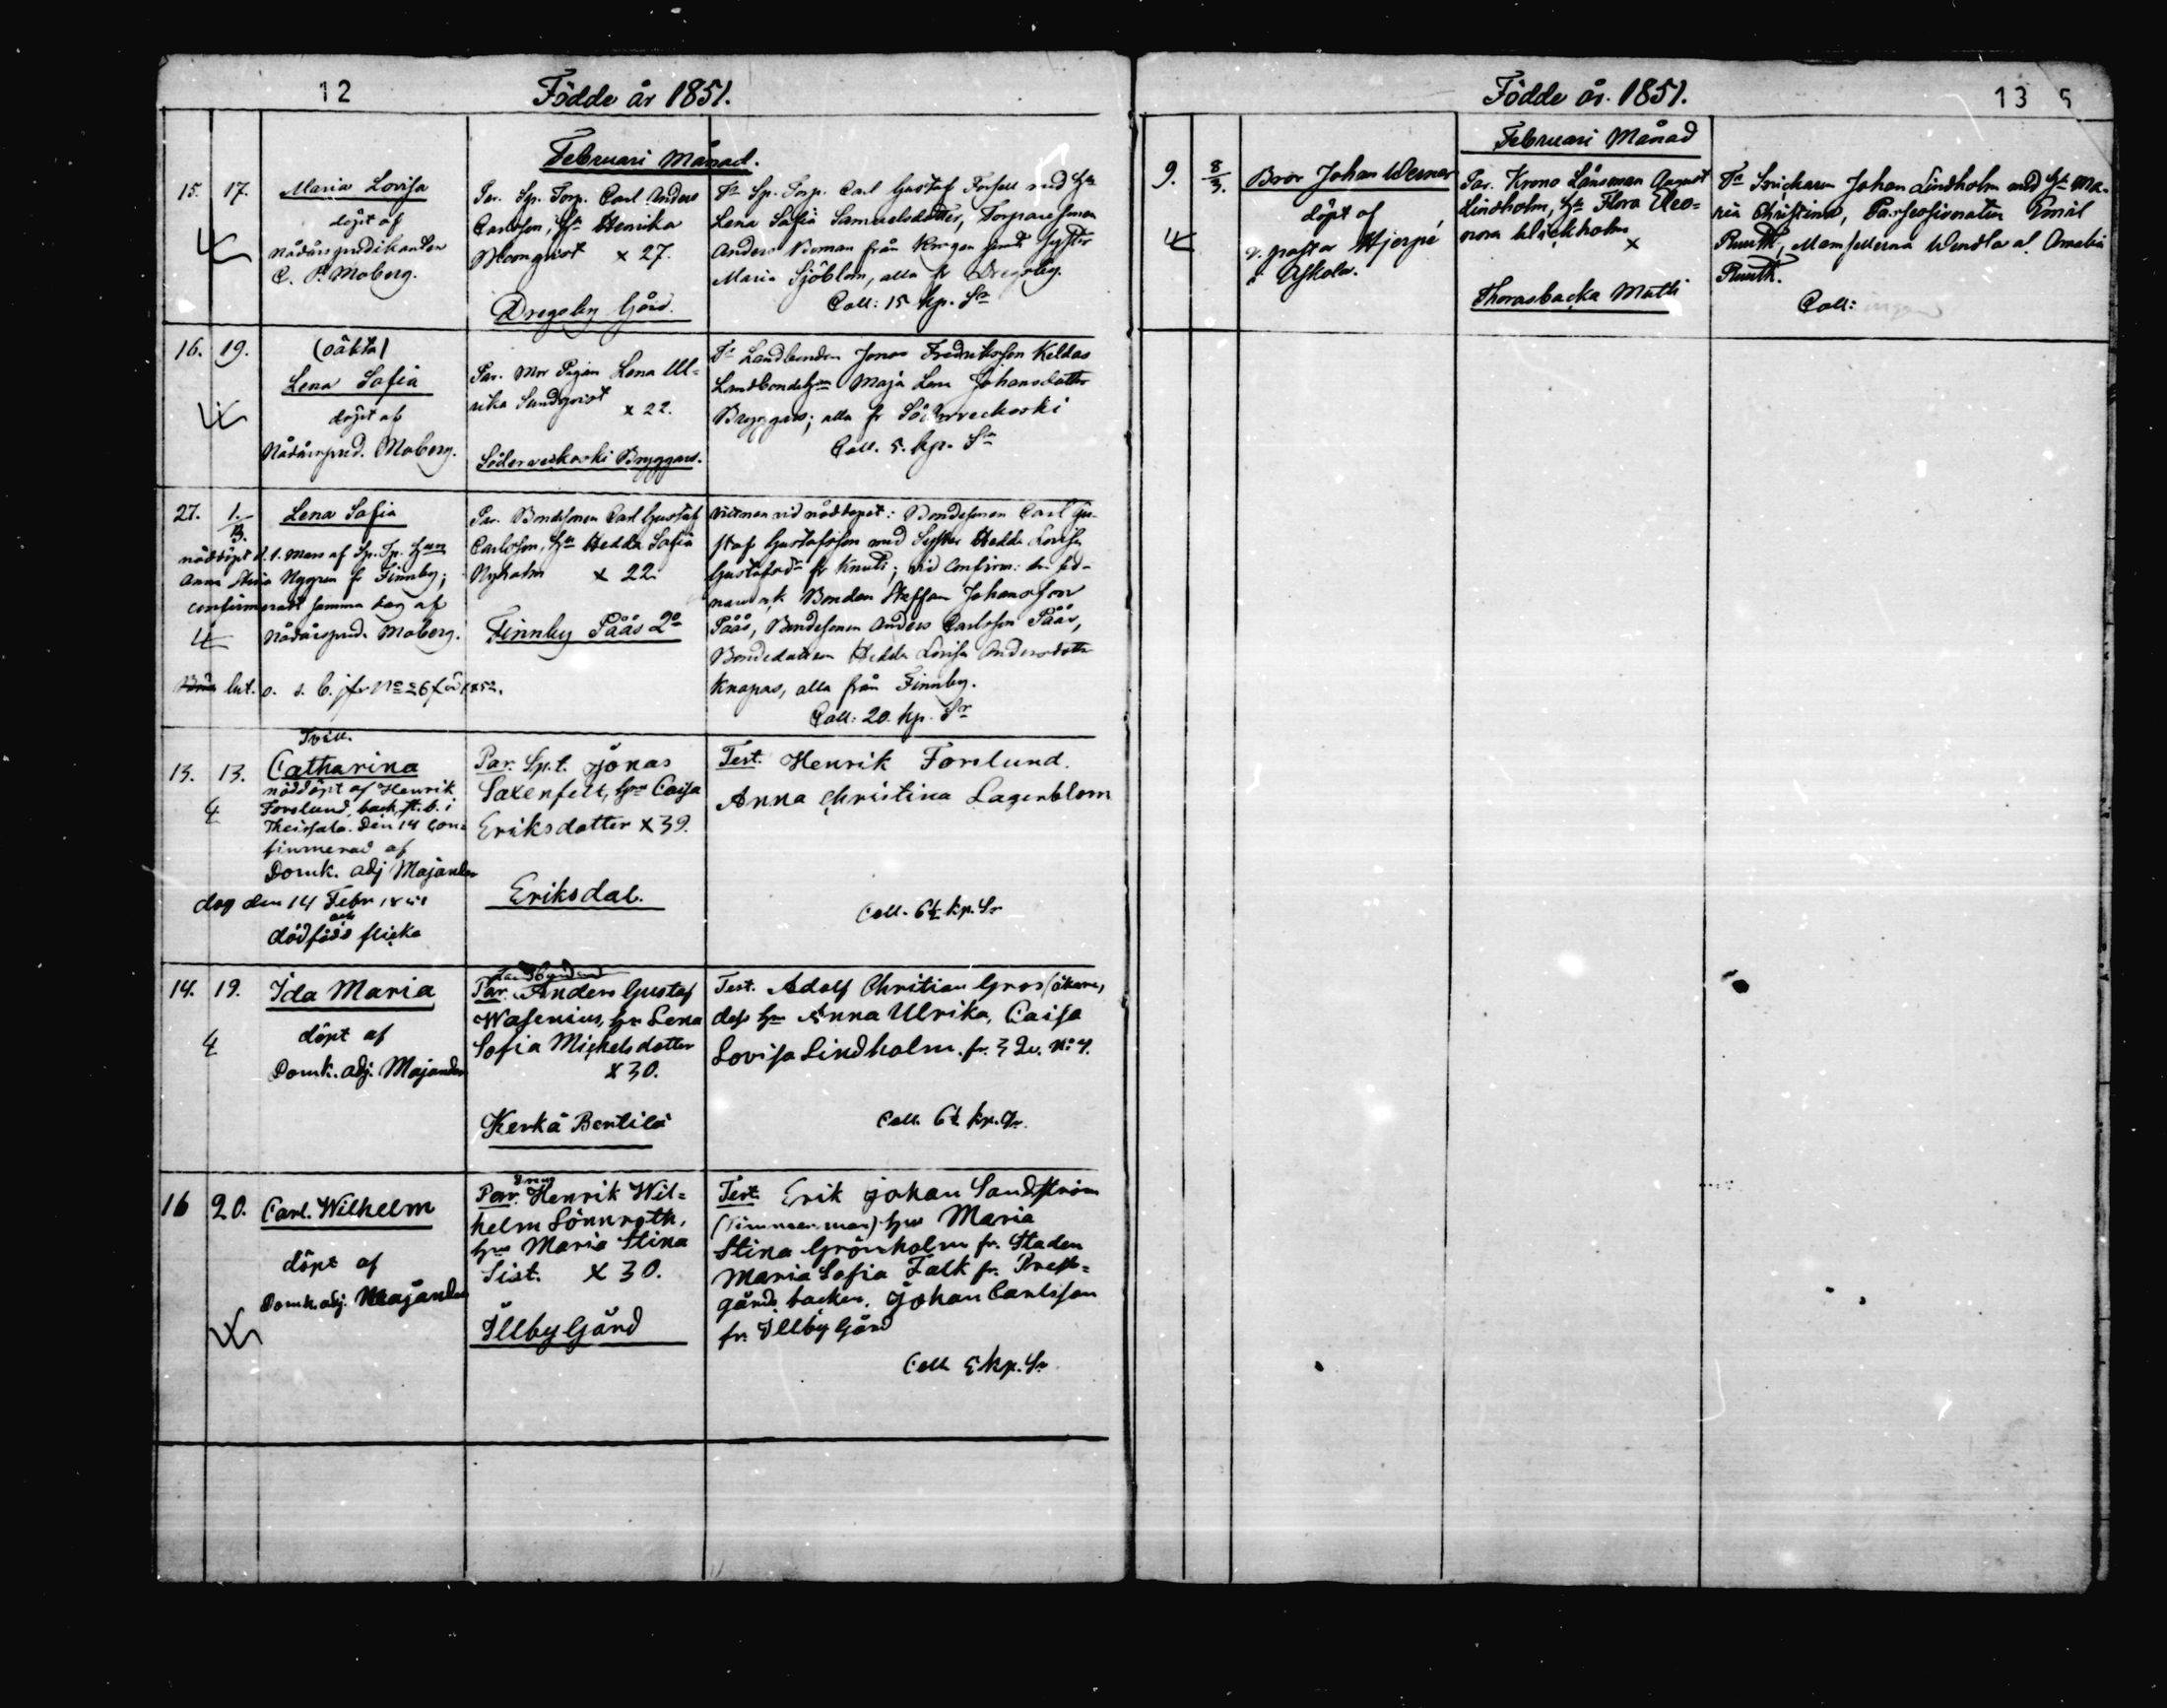 12
Födde år 1851.
Februari Månad.
15. 17. Maria Lovisa
döpt af
nådårspredikanten
C. P. Moberg.
Par. Sp. Torp. Carl Anders
Carlsson, Hu Henrika
Blomqvist x 27.
Dregsby Gård.
Sp. Torp. Carl Gustaf Forsell med Hu
Lena Safia Samuelsdotter, Torparesonen
Anders Noman från samt syster
Maria Sjöblom, alla fr Dregsby.
Coll: 15 kp. Sr
16. 19. (oäkta)
Lena Safia
döpt af
Nådårspred. Moberg.
Par. Mor Pigan Lena Ul-
rika Sundqvist x 22.
Söderveckoski Bryggars.
Landbonden Jonas Fredriksson Keldas
Landbondehun Maja Lena Johansdotter
Bryggars; alla fr Söderveckoski
Coll. 5. kp. Sr
27. 1./3. Lena Safia
nöddöpt d. 1. Mars af Sp. Tp. Hun
Anna Stina Nygren fr Finnby;
confirmeradt samma dag af
Nådårspred. Moberg.
lut. o. s. b. jfr No 26 föd 1852.
Par. Bondesonen Carl Gustaf
Carlsson, Hu Hedda Safia
Nyholm x 22.
Finnby Påås 2o
Vittnen vid nöddopet: Bondesonen Carl Gu-
staf Gustafsson med Syster Hedda Lovisa
Gustafsdr fr Knuts; vid Confirm:
Bonden Staffan Johansson
Påås, Bondesonen Anders Carlsson Påås,
Bondedottren Hedda Lovisa Andersdotter
Knapas, alla från Finnby.
Coll: 20. kp. Sr
Tvill.
13. 13. Catharina
nöddöpt af Henrik
Forslund, back. st. b. i
Theissala. Den 14 Con-
firmerad af
Domk. adj Majander
dog den 14 Febr. 1851
och
dödfödd flicka
Par. Sp. t. Jonas
Saxenfelt, hu Caisa
Eriksdotter x 39.
Eriksdal.
Test. Henrik Forslund.
Anna Christina Lagerblom
Coll. 6½ kp. Sr
14. 19. Ida Maria
döpt af
Domk. adj. Majander
Par. Anders Gustaf
Wasenius, hu Lena
Sofia Michelsdotter
x 30.
Kerkå Bertilä
Test. Adolf Christian Gros (åkare)
dess hu Anna Ulrika, Caisa
Lovisa Lindholm. fr. 3 Qv. No 4.
Coll. 6½ kp. Sr.
16 20. Carl. Wilhelm
döpt af
Domk. adj. Majander
Dreng
Par. Henrik Wil-
helm Lönnroth,
hu Maria Stina
Sist. x 30.
Illby Gård
Test. Erik Johan Sandström
(Timmerman) hu Maria
Stina Grönholm fr. Staden
Maria Sofia Falk fr. Prest-
gårds backen. Johan Carlsson
fr. Illby Gård
Coll 5 kp. Sr
Födde år. 1851.
13 5
Februari Månad
9. 8/3. Bror Johan Werner
döpt af
v. pastor Hjerpé
i Askola.
Par. Krono Länsman August
Lindholm, Hu Flora Eleo-
nora Wickholm
x
Thorasbacka Matti
Snickaren Johan Lindholm med Hu Ma-
ria Christina, Emil
Ruuth, Mamsellerna Wendla af Amalia
Ruuth.
Coll: